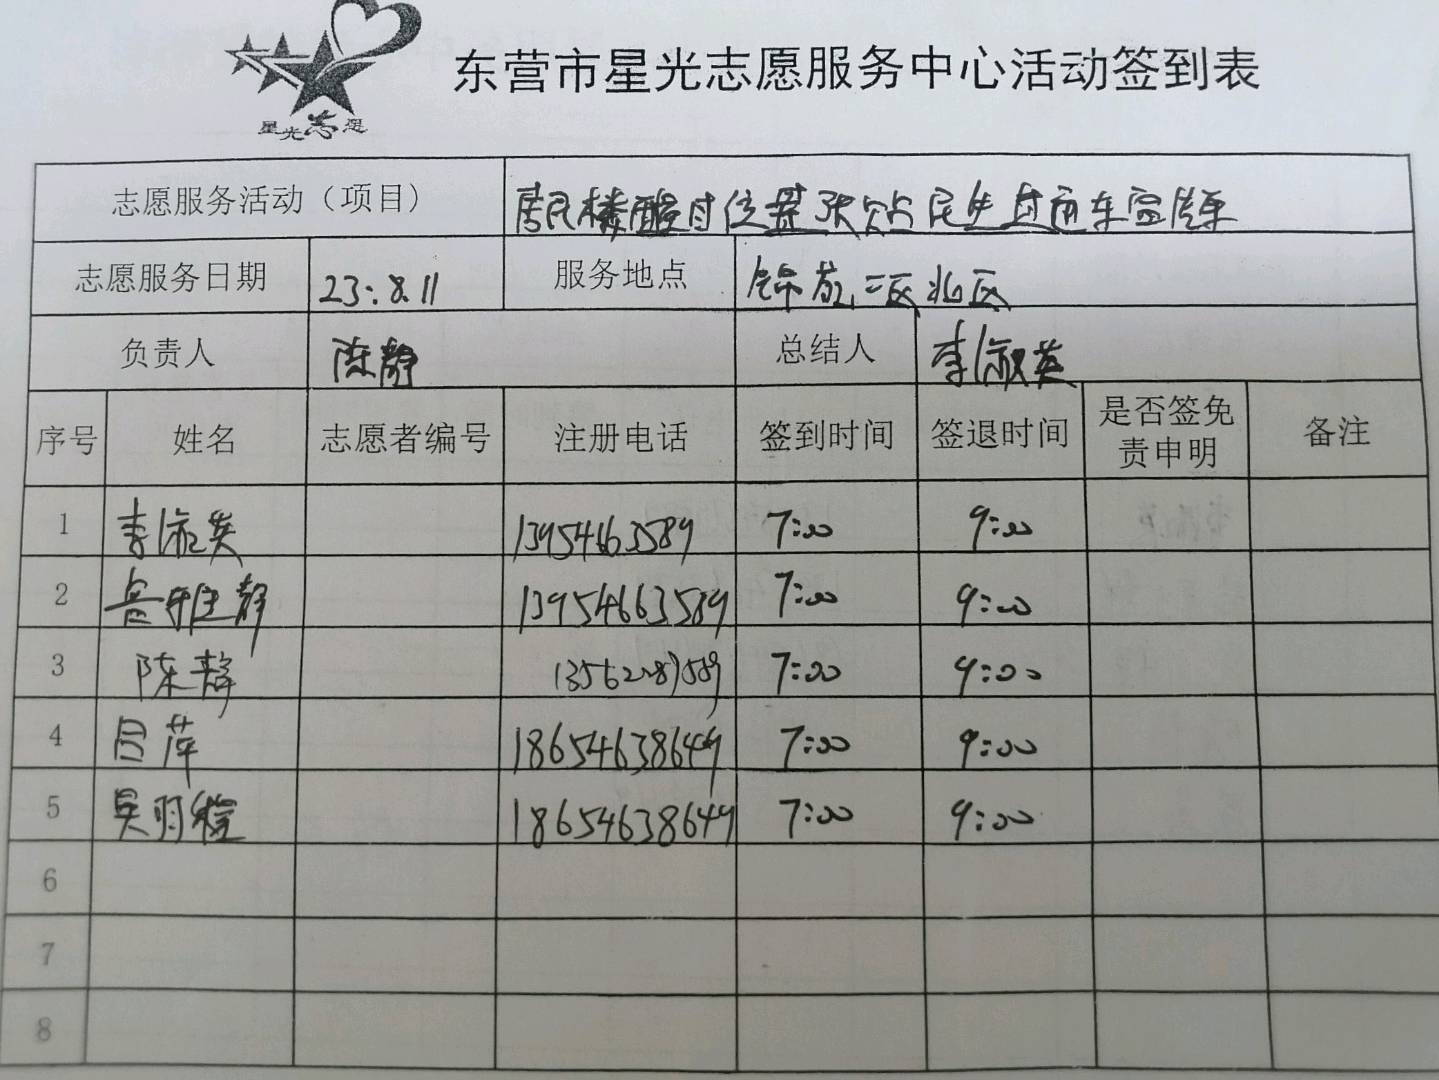 星光志愿
东营市星光志愿服务中心活动签到表
志愿服务活动（项目） 居民楼醒目位置张贴民生直通车宣传单
志愿服务日期 23:8.11 服务地点 锦苑二区北区
负责人 陈静 总结人 李淑英
序号 姓名 志愿者编号 注册电话 签到时间 签退时间 是否签免责申明 备注
1 李淑英 13954663589 7:00 9:00
2 13954663589 7:00 9:00
3 陈静 7:00 9:00
4 吕萍 18654638649 7:00 9:00
5 18654638649 7:00 9:00
6
7
8